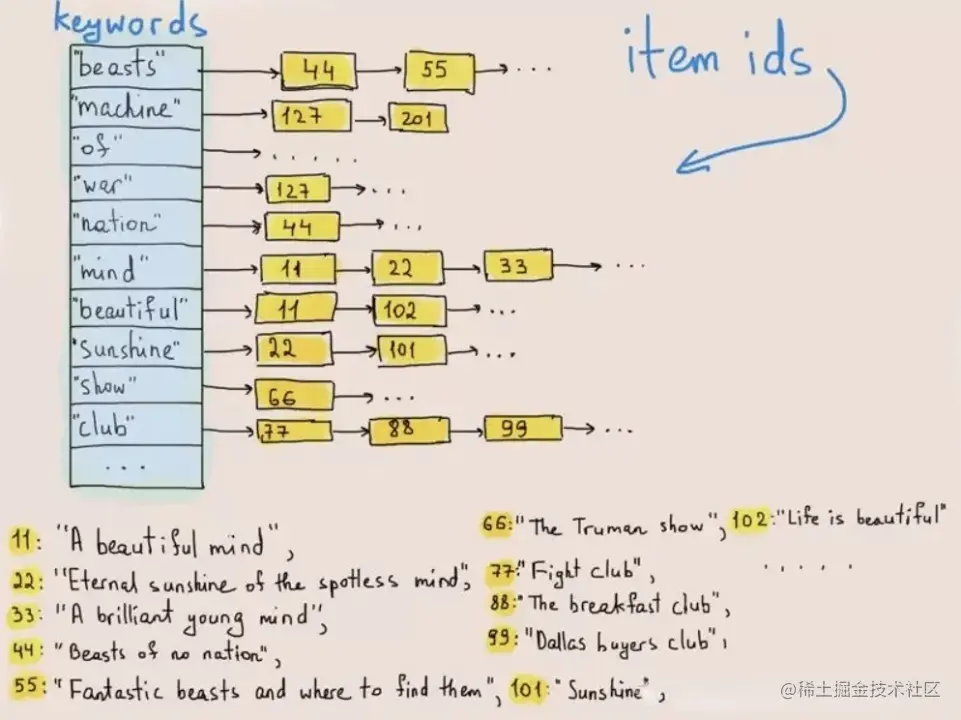 keywords
item ids
"beasts" 44 55 ...
"machine" 127 201
"of" ......
"war" 127 ...
"nation" 44 ...
"mind" 11 22 33 ...
"beautiful" 11 102 ...
"sunshine" 22 101 ...
"show" 66 ...
"club" 77 88 99 ...
...
11: "A beautiful mind",
22: "Eternal sunshine of the spotless mind",
33: "A brilliant young mind",
44: "Beasts of no nation",
55: "Fantastic beasts and where to find them", 101: "Sunshine",
66: "The Truman show", 102: "Life is beautiful"
77: "Fight club", .....
88: "The breakfast club",
99: "Dallas buyers club",
@稀土掘金技术社区